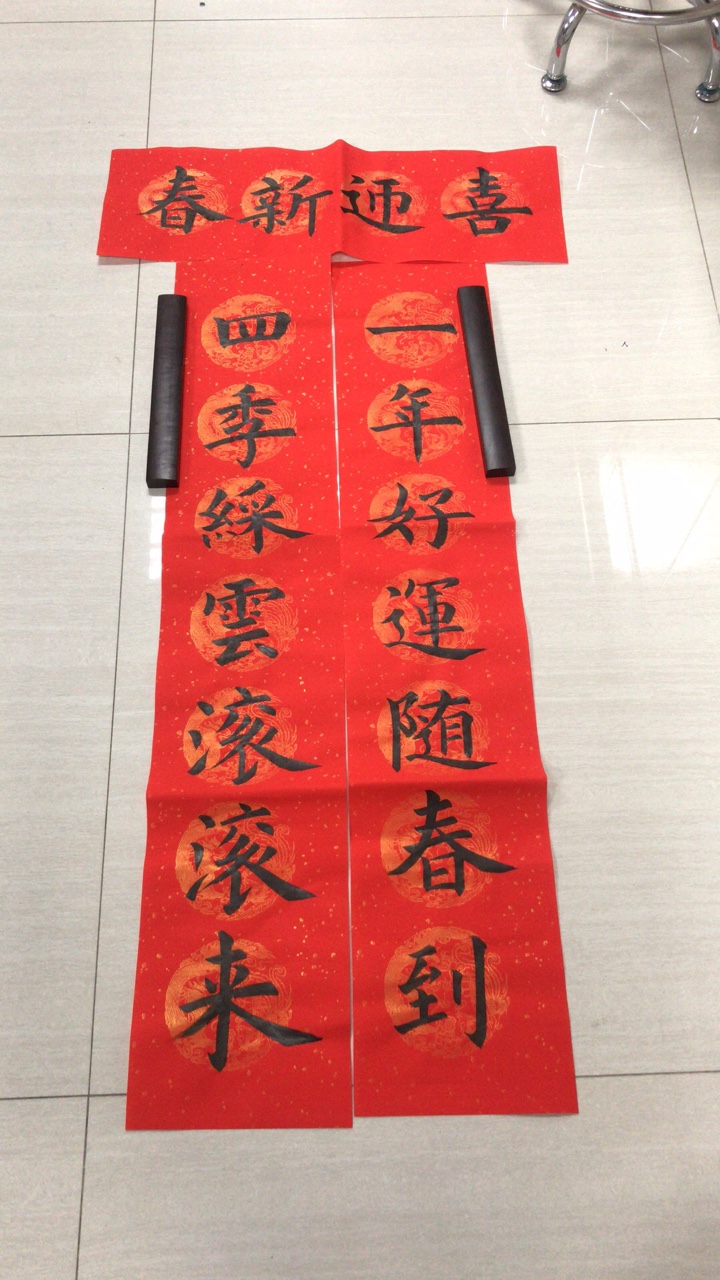 喜迎新春
一年好運随春到
四季綵雲滚滚来